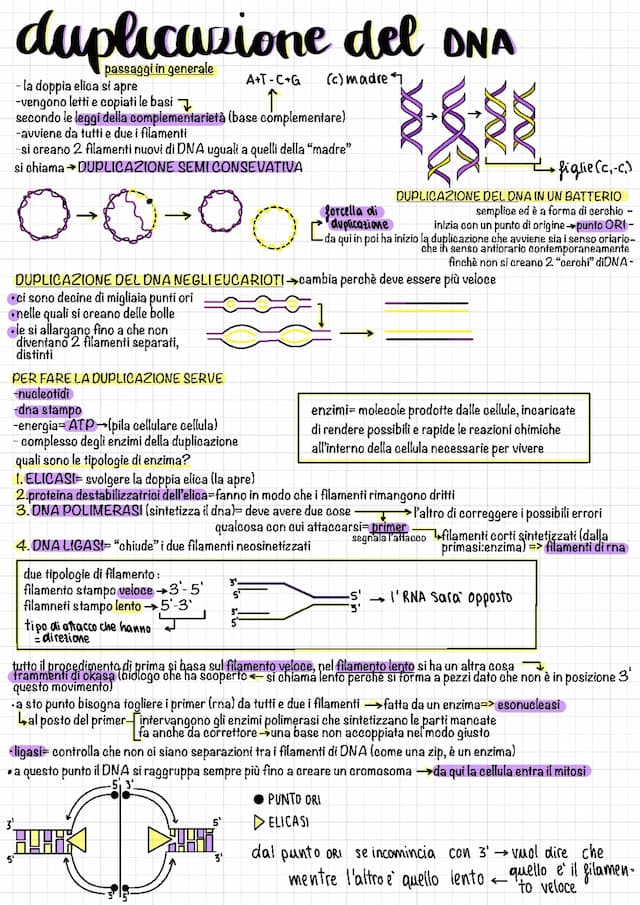 duplicazione del DNA
passaggi in generale
- la doppia elica si apre
-vengono letti e copiati le basi
secondo le leggi della complementarietà (base complementare)
-avviene da tutti e due i filamenti
-si creano 2 filamenti nuovi di DNA uguali a quelli della "madre"
si chiama → DUPLICAZIONE SEMI CONSEVATIVA
A+T - C+G
(c) madre
figlie (c,-c,)
DUPLICAZIONE DEL DNA IN UN BATTERIO
semplice ed è a forma di cerchio -
inizia con un punto di origine → punto ORI -
forcella di
duplicazione
da qui in poi ha inizio la duplicazione che avviene sia i senso oriario-
che in senso antiorario contemporaneamente
finchè non si creano 2 "cerchi" di DNA -
DUPLICAZIONE DEL DNA NEGLI EUCARIOTI → cambia perchè deve essere più veloce
•ci sono decine di migliaia punti ori
•nelle quali si creano delle bolle
•le si allargano fino a che non
diventano 2 filamenti separati,
distinti
PER FARE LA DUPLICAZIONE SERVE
-nucleotidi
-dna stampo
-energia= ATP →(pila cellulare cellula)
- complesso degli enzimi della duplicazione
enzimi= molecole prodotte dalle cellule, incaricate
di rendere possibili e rapide le reazioni chimiche
all'interno della cellula necessarie per vivere
quali sono le tipologie di enzima?
1. ELICASI= svolgere la doppia elica (la apre)
2.proteina destabilizzatrici dell'elica=fanno in modo che i filamenti rimangono dritti
3. DNA POLIMERASI (sintetizza il dna)= deve avere due cose → l'altro di correggere i possibili errori
qualcosa con cui attaccarsi= primer
segnala l'attacco
filamenti corti sintetizzati (dalla
primasi:enzima) => filamenti di rna
4. DNA LIGASI= "chiude" i due filamenti neosinetizzati
due tipologie di filamento:
filamento stampo veloce → 3'- 5'
filamneti stampo lento → 5'-3'
tipo di attacco che hanno
= direzione
3'
5'
3'
5'
5'
3'
→ l'RNA sarà opposto
tutto il procedimento di prima si basa sul filamento veloce, nel filamento lento si ha un altra cosa
frammenti di okasa (biologo che ha scoperto ← si chiama lento perchè si forma a pezzi dato che non è in posizione 3'
questo movimento)
•a sto punto bisogna togliere i primer (rna) da tutti e due i filamenti → fatta da un enzima=> esonucleasi
al posto del primer→ intervangono gli enzimi polimerasi che sintetizzano le parti mancate
fa anche da correttore → una base non accoppiata nel modo giusto
•ligasi= controlla che non ci siano separazioni tra i filamenti di DNA (come una zip, è un enzima)
• a questo punto il DNA si raggruppa sempre più fino a creare un cromosoma → da qui la cellula entra il mitosi
5' 3'
3'
5'
5'
3'
3' 5'
PUNTO ORI
ELICASI
dal punto ORI se incomincia con 3' → vuol dire che
quello è il filamen-
to veloce
mentre l'altro è quello lento ←